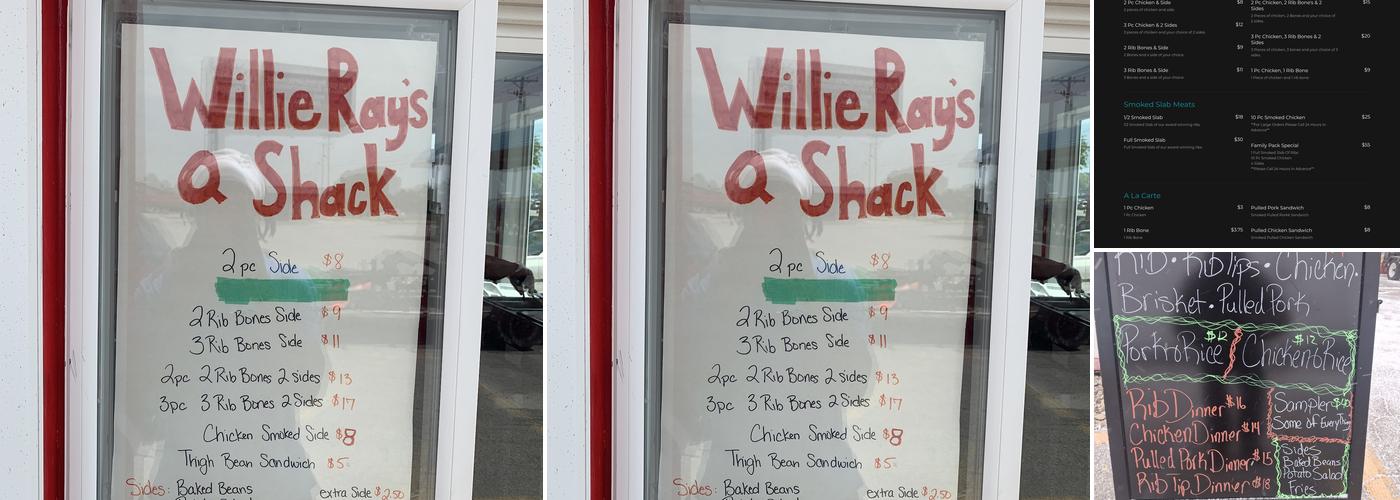 Willie Ray's
Q Shack
2 pc Side $8
2 Rib Bones Side $9
3 Rib Bones Side $11
2pc 2 Rib Bones 2 Sides $13
3pc 3 Rib Bones 2 Sides $17
Chicken Smoked Side $8
Thigh Bean Sandwich $5
Sides: Baked Beans extra Side $2.50
Willie Ray's
Q Shack
2 pc Side $8
2 Rib Bones Side $9
3 Rib Bones Side $11
2pc 2 Rib Bones 2 Sides $13
3pc 3 Rib Bones 2 Sides $17
Chicken Smoked Side $8
Thigh Bean Sandwich $5
Sides: Baked Beans extra Side $2.50
2 Pc Chicken & Side $8
2 pieces of chicken and side.
3 Pc Chicken & 2 Sides $12
3 pieces of chicken and your choice of 2 sides.
2 Rib Bones & Side $9
2 Bones and a side of your choice.
3 Rib Bones & Side $11
3 Bones and a side of your choice.
2 Pc Chicken, 2 Rib Bones & 2 Sides $15
2 Pieces of chicken, 2 Bones and your choice of 2 sides.
3 Pc Chicken, 3 Rib Bones & 2 Sides $20
3 Pieces of chicken, 3 bones and your choice of 3 sides.
1 Pc Chicken, 1 Rib Bone $9
1 Piece of chicken and 1 rib bone
Smoked Slab Meats
1/2 Smoked Slab $18
1/2 Smoked Slab of our award winning ribs.
Full Smoked Slab $30
Full Smoked Slab of our award winning ribs.
10 Pc Smoked Chicken $25
**For Large Orders Please Call 24 Hours In Advance**
Family Pack Special $55
1 Full Smoked Slab Of Ribs
10 Pc Smoked Chicken
4 Sides
**Please Call 24 Hours In Advance**
A La Carte
1 Pc Chicken $3
1 Pc Chicken
1 Rib Bone $3.75
1 Rib Bone
Pulled Pork Sandwich $8
Smoked Pulled Pork Sandwich
Pulled Chicken Sandwich $8
Smoked Pulled Chicken Sandwich
Rib • Rib Tips • Chicken •
Brisket • Pulled Pork
Pork & Rice $12
Chicken & Rice $12
Rib Dinner $16
Chicken Dinner $14
Pulled Pork Dinner $15
Rib Tip Dinner $18
Sampler
Some of Everything
Sides
Baked Beans
Potato Salad
Fries